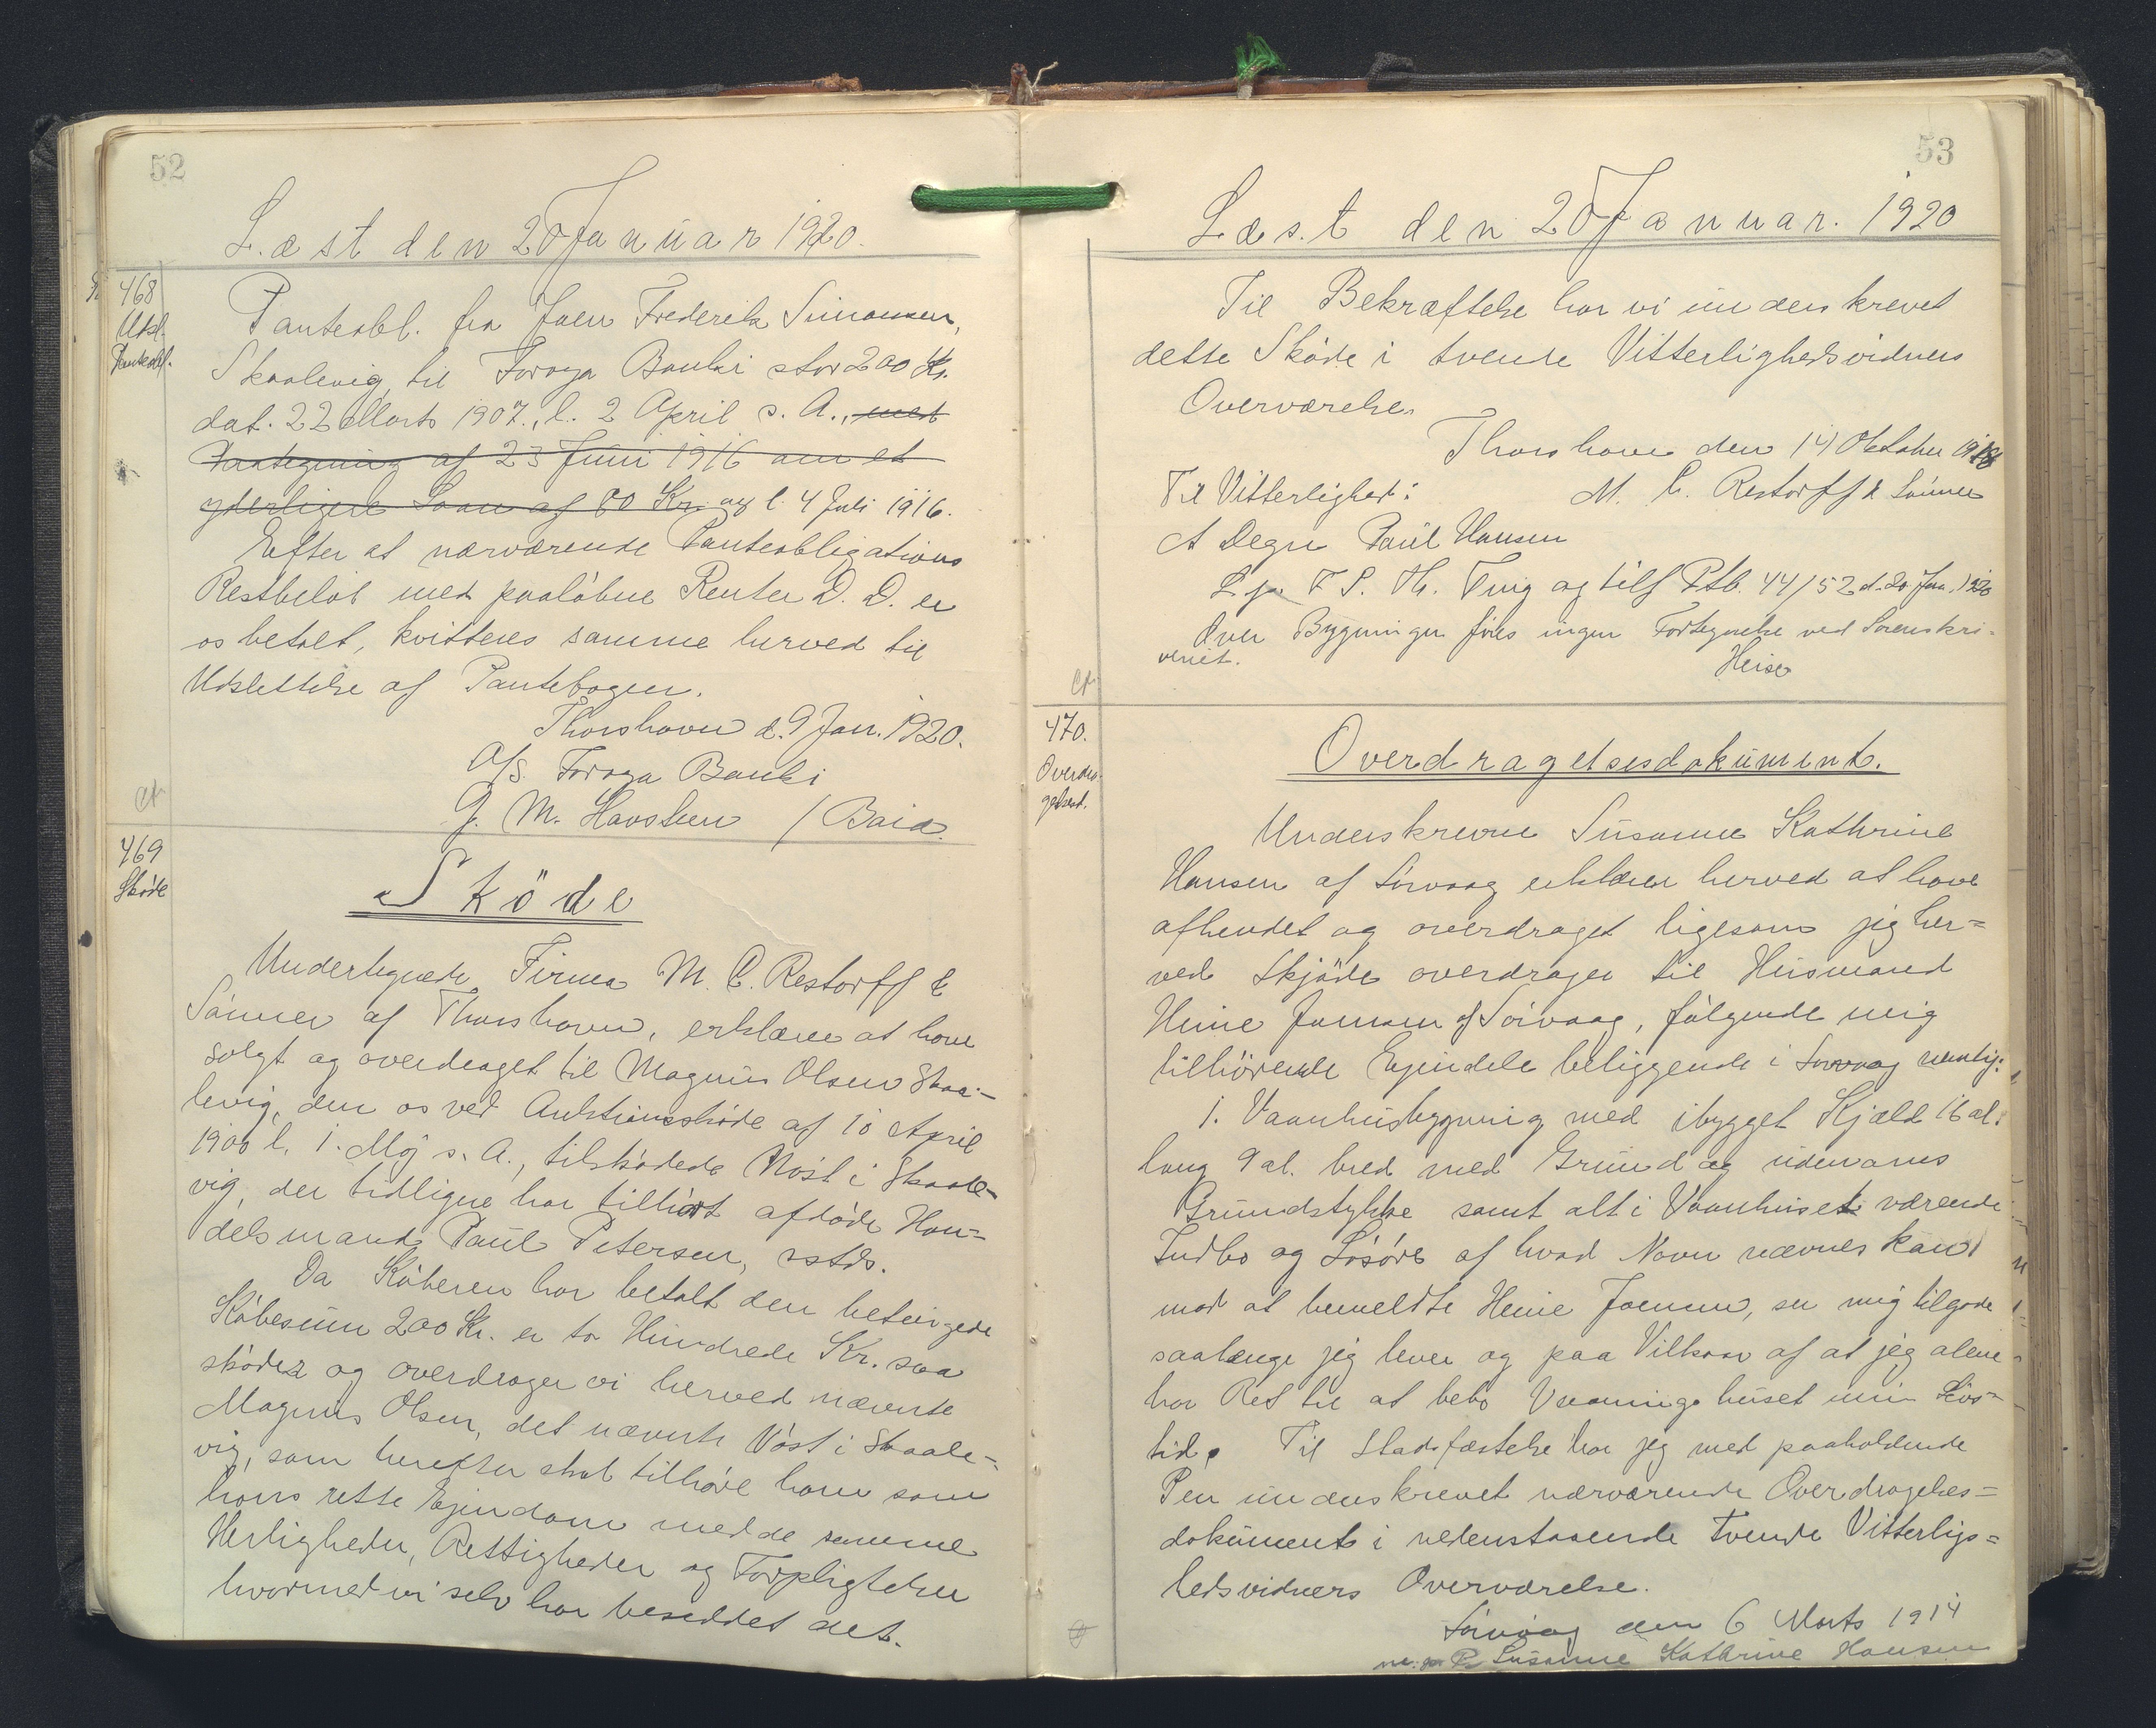 52
Læst den 20 Januar 1920.
468
Udsl.
Panteobl.
Panteobl. fra Joen Frederik Simonsen,
Skaalevig til Føroya Banki stor 200 Kr.
dat. 22 Marts 1907., l. 2 April s. A., med
Paategning af 23 Juni 1916 om et
yderligere Laan af 80 Kr. og l. 4 Juli 1916.
Efter at nærværende Panteobligations
Restbeløb med paaløbne Renter D. D. er
os betalt, kvitteres samme herved til
Udslettelse af Pantebogen.
Thorshavn d. 9 Jan. 1920.
A/S Føroya Banki
J. M. Havsteen / Baia
469
Skøde
Sköde
Undertegnede Firma M. C. Restorff &
Sønner af Thorshavn, erklærer at have
solgt og overdraget til Magnus Olsen Skaa-
levig, den os ved Auktionsskøde af 10 April
1900 l. 1. Maj s. A., tilskødede Nøst i Skaale-
vig, der tidligere har tilhørt afdøde Han-
delsmand Paul Petersen, sstds.
Da Køberen har betalt den betingede
Købesum 200 Kr. er to Hundrede Kr. saa
skøder og overdrager vi herved nævnte
Magnus Olsen, det nævnte Nøst i Skaale-
vig, som herefter skal tilhøre ham som
hans rette Ejendom med de samme
Herligheder, Rettigheder og Forpligtelser
hvormed vi selv har besiddet det.
53
Læst den 20 Januar. 1920
Til Bekræftelse har vi underskrevet
dette Skøde i tvende Vitterlighedsvidners
Overværelse.
Thorshavn den 14 Oktober 1918
Til Vitterlighed: M. C. Restorff & Sønner
A Degn Paul Hansen
L. p. F S. Th. Ting og tilf Ptb. 44/52 d. 20 Jan. 1920
Over Bygninger føres ingen Fortegnelse ved Sorenskri-
veriet.
Heise
470.
Overdra-
gelsesd.
Overdragelsesdokument.
Underskrevne Susanne Kathrine
Hansen af Sørvaag erklærer herved at have
afhendet og overdraget ligesom jeg her-
ved skjøde overdrager til Husmand
Heine Joensen af Sørvaag, følgende mig
tilhørende Ejendele beliggende i Sørvaag nemlig:
1. Vaanhusbygning med ibygget Kjæld 16 al.
lang 9 al. bred med Grund og udenoms
Grundstykke samt alt i Vaanhuset værende
Indbo og Løsøre af hvad Navn nævnes kan
mod at bemeldte Heine Joensen, ser mig tilgode
saalænge jeg lever og paa Vilkaar af at jeg alene
har Ret til at bebo Vaaningshuset min Livs-
tid. Til Stadsfæstelse har jeg med paaholdende
Pen underskrevet nærværende Overdragelses-
dokument i nedenstaaende tvende Vitterlig-
hedsvidners Overværelse.
Sørvaag den 6 Marts 1914
m. p. P. Susanne Kathrine Hansen